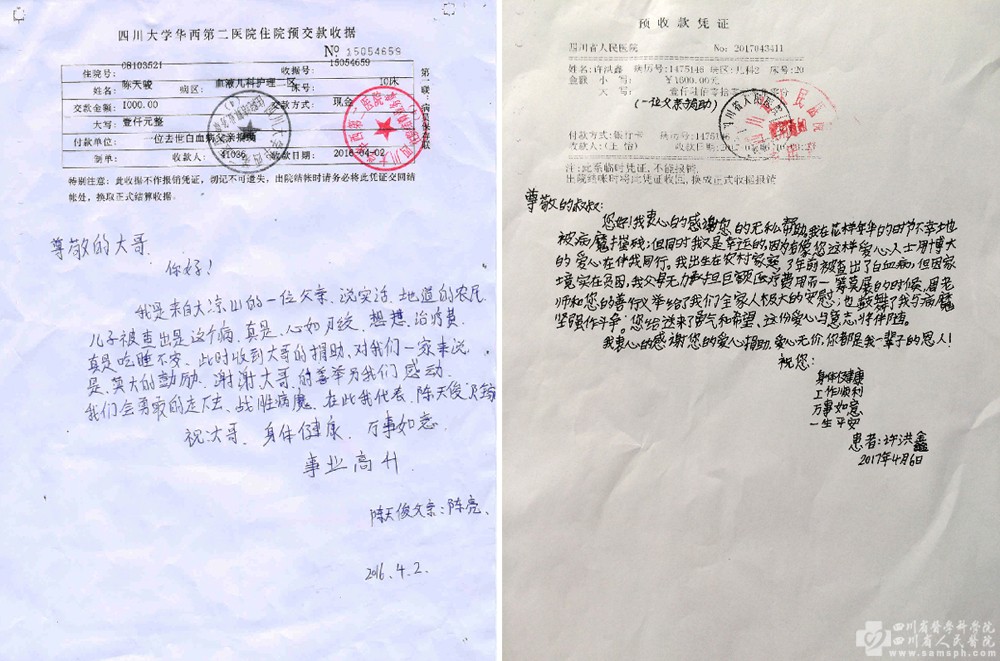 四川大学华西第二医院住院预交款收据
No 15054659
住院号: 08103521 收据号: 15054659
姓名: 陈天骏 病区: 血液儿科护理二区 床号: 10床
交款金额: 1000.00 交款方式: 现金
大写: 壹仟元整
付款单位: 一位去世白血病父亲捐助
制单: 收款人: 41036 收款日期: 2016-04-02
第一联:病员保存联
特别注意: 此收据不作报销凭证, 切记不可遗失, 出院结帐时请务必将此凭证交回结
帐处, 换取正式结算收据。
尊敬的大哥.
你好!
我是来自大凉山的一位父亲. 说实话. 地道的农民
儿子被查出是这个病. 真是. 心如刀绞. 想想. 治疗费
真是吃睡不安. 此时收到大哥的捐助. 对我们一家来说
是. 莫大的鼓励. 谢谢大哥. 的善举另我们感动.
我们会勇敢的走下去. 战胜病魔. 在此我代表. 陈天俊
祝大哥. 身体健康. 万事如意.
事业高升
陈天俊父亲:陈亮.
2016.4.2.
预收款凭证
四川省人民医院 No: 2017043411
姓名: 许洪鑫 病历号: 1475146 病区: 儿科2 床号: 20
金额 小 写: ¥1600.00元
大 写: 壹仟陆佰零拾
(一位父亲捐助)
付款方式: 银行卡
注: 此系临时凭证, 不能报销.
出院结帐时将此凭证收回, 换成正式收据报销
尊敬的叔叔:
您好!我衷心的感谢您的无私帮助,我在花样年华的时节不幸地
被病魔摧残;但同时我又是幸运的,因为有像您这样爱心人士用博大
的爱心在伴我同行。我出生在农村家寒,3年前被查出了白血病,但因家
境实在贫困,我父母无力承担巨额医疗费用而一筹莫展的时候,眉老
师和您的善行义举给了我们全家人极大的安慰;也鼓舞了我与病魔
坚强作斗争;您给送来了勇气和希望,这份爱心与意志将伴随。
我衷心的感谢您的爱心捐助,爱心无价,你都是我一辈子的恩人!
祝您:
身体健康
工作顺利
万事如意
一生平安
患者:许洪鑫
2017年4月6日
四川省医学科学院
四川省人民医院
www.samsph.com